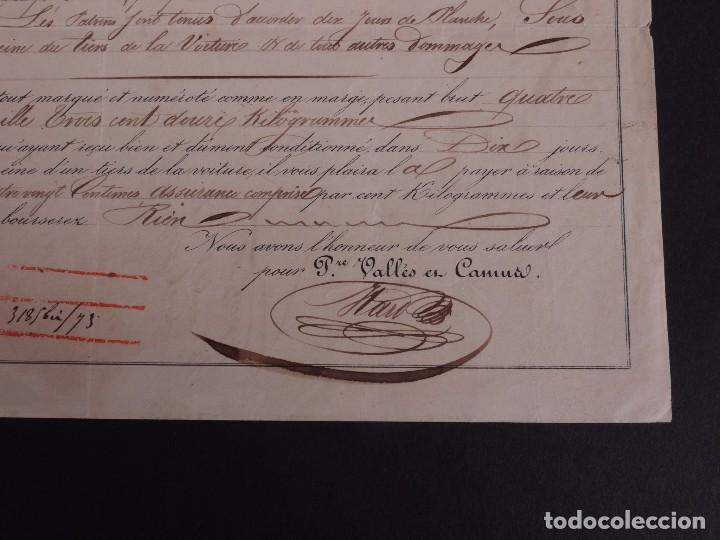 Les Patrons sont tenus d'accorder dix Jours de Planche, Sous
eine du tiers de la Voiture & de tous autres Dommages
tout marqué et numéroté comme en marge, pesant brut quatre
ille Trois cent douze Kilogrammes
qu'ayant reçu bien et dûment conditionné, dans Dix jours,
eine d'un tiers de la voiture, il vous plaira la payer à raison de
tre vingt Centimes assurance comprise par cent Kilogrammes et leur
bourserez Rien
Nous avons l'honneur de vous saluer
pour P.re Vallés en Camuzs.
3185 bis/73
todocoleccion
todocoleccion.net